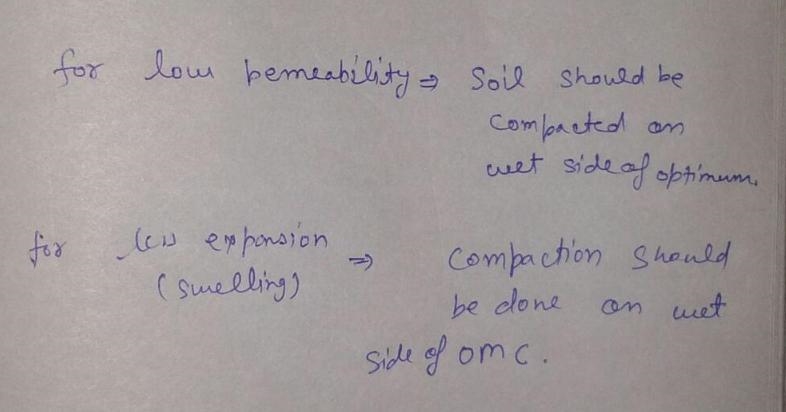 for low permeability ⇒ Soil should be
compacted on
wet side of optimum.
for less expansion ⇒ Compaction should
(swelling)
be done on wet
side of omc.